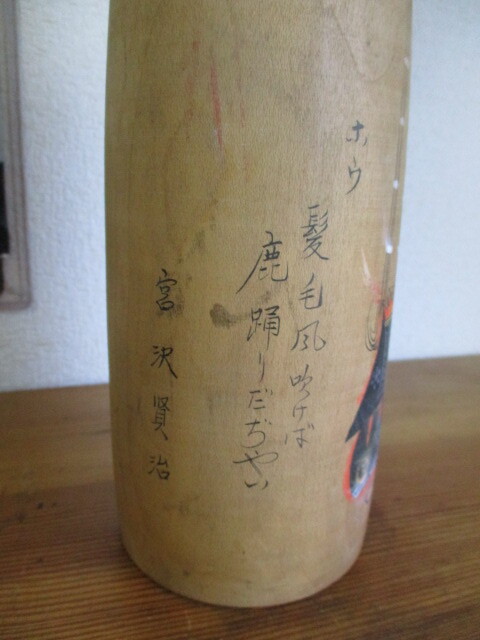 ホウ
髪毛風吹けば
鹿踊りだぢやい
宮沢賢治